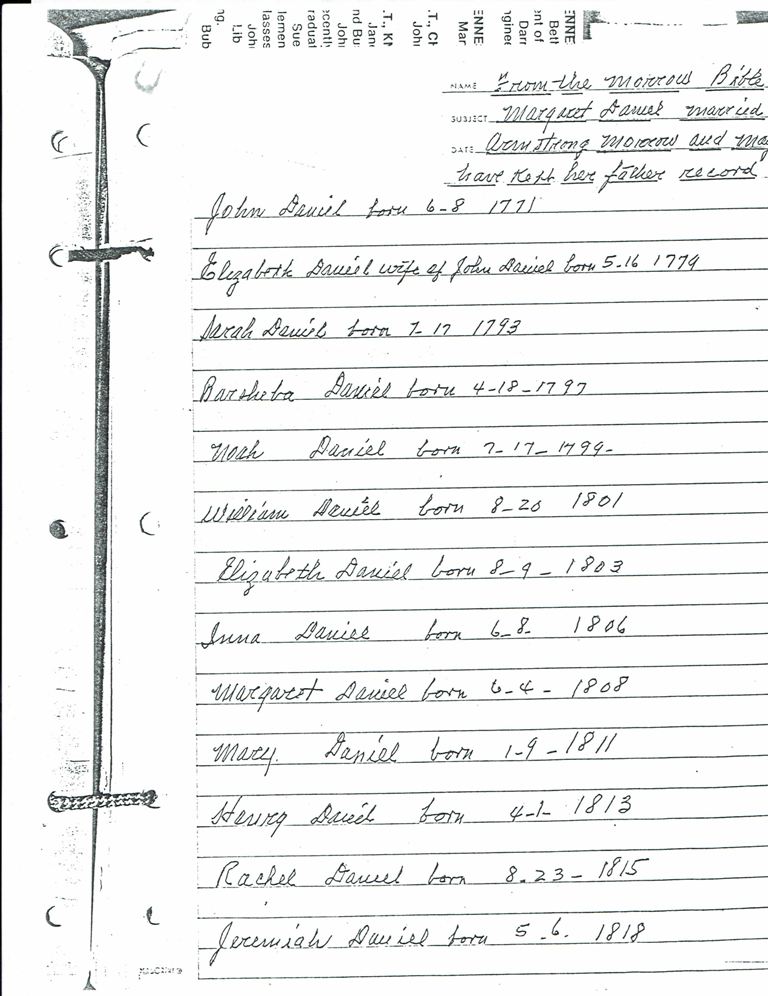 ENNE
Beth
ent of
Darr
nginee
ENNE
Mar
John
nd Bu
Joh
ecently
raduat
Sue
lemen
lasses
Joh
Lib
ng.
Bub
NAME From the Morrow Bible
SUBJECT Margaret Daniel married
DATE Armstrong Morrow and
have Kept her father record
John Daniel born 6-8 1771
Elizabeth Daniel wife of John Daniel born 5.16 1779
Sarah Daniel born 7-17 1793
Barsheba Daniel born 4-18-1797
Noah Daniel born 7-17-1799-
William Daniel born 8-20 1801
Elizabeth Daniel born 8-9-1803
Inna Daniel born 6-8- 1806
Margaret Daniel born 6-4- 1808
Mary Daniel born 1-9-1811
Henry Daniel born 4-1- 1813
Rachel Daniel born 8.23-1815
Jeremiah Daniel born 5.6. 1818